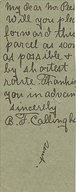 My dear Mr. Pen
Will you ple
forward this
parcel as soon
as possible &
by shortest
route. Thanking
you in advance
sincerely
B. F. Calling